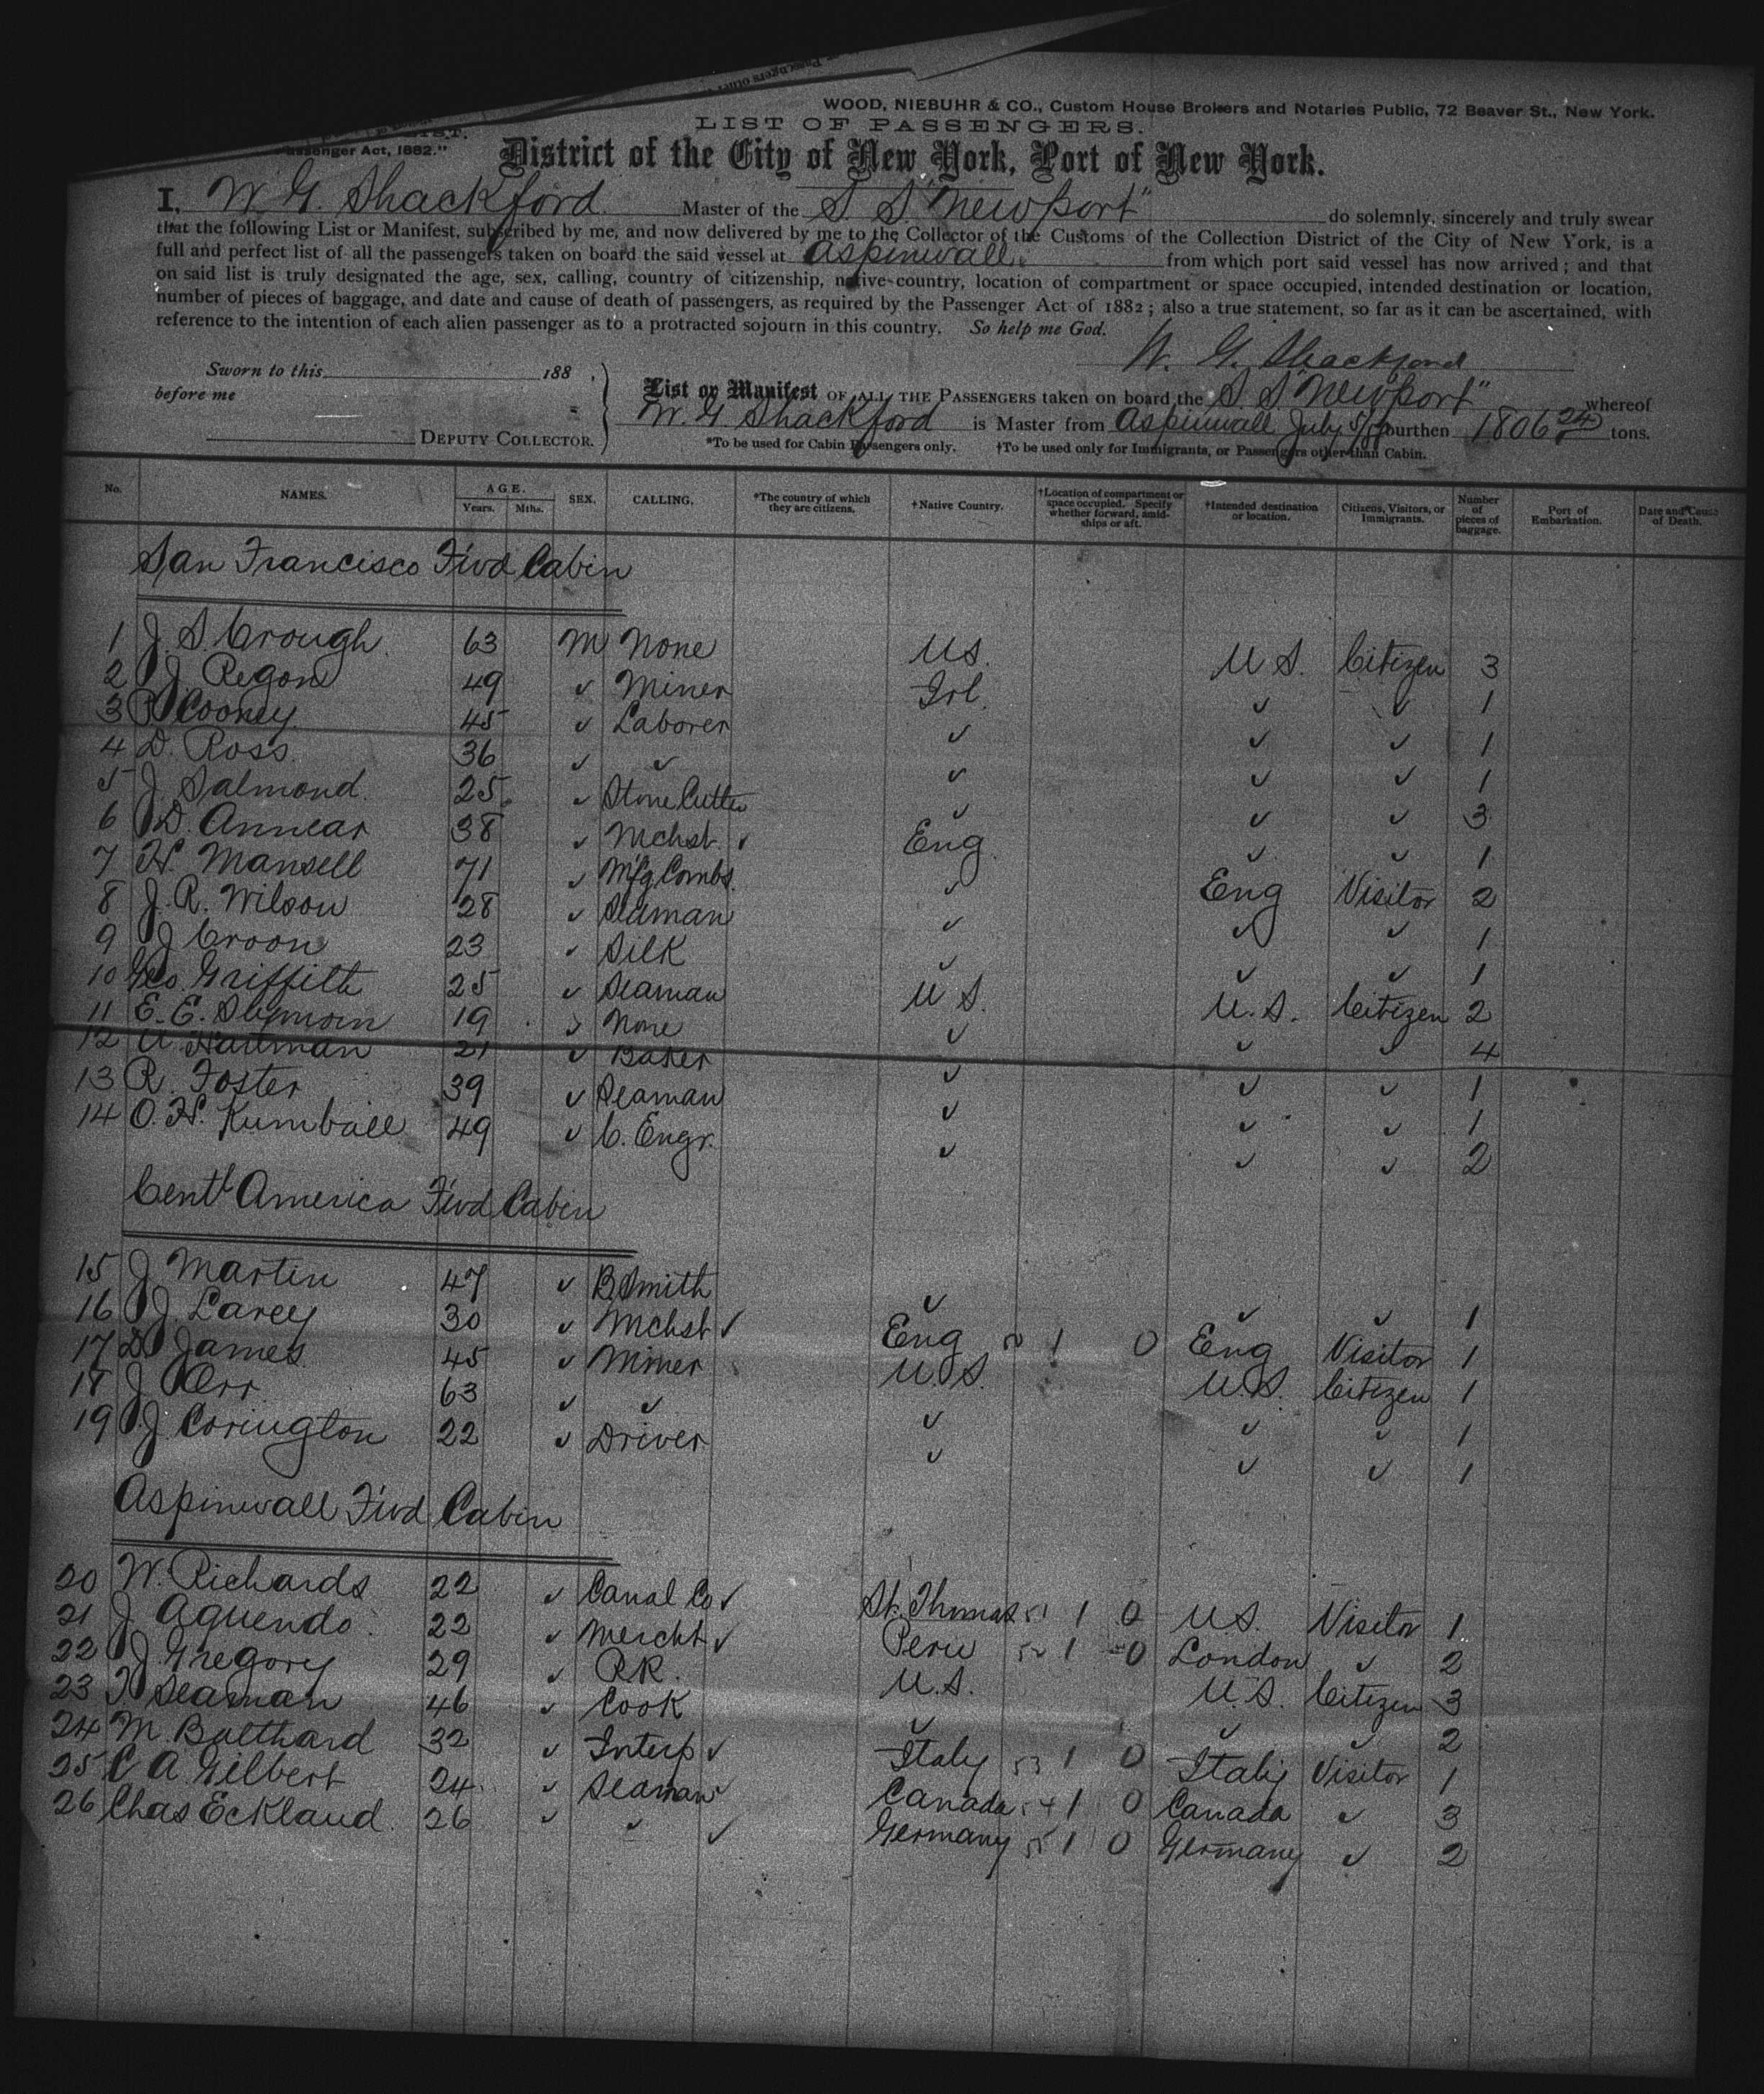 Passengers other
IST.
assenger Act, 1882."
WOOD, NIEBUHR & CO., Custom House Brokers and Notaries Public, 72 Beaver St., New York.
LIST OF PASSENGERS.
District of the City of New York, Port of New York.
I, W. G. Shackford Master of the S. S. "Newport" do solemnly, sincerely and truly swear
that the following List or Manifest, subscribed by me, and now delivered by me to the Collector of the Customs of the Collection District of the City of New York, is a
full and perfect list of all the passengers taken on board the said vessel at Aspinwall from which port said vessel has now arrived; and that
on said list is truly designated the age, sex, calling, country of citizenship, native country, location of compartment or space occupied, intended destination or location,
number of pieces of baggage, and date and cause of death of passengers, as required by the Passenger Act of 1882; also a true statement, so far as it can be ascertained, with
reference to the intention of each alien passenger as to a protracted sojourn in this country. So help me God.
W. G. Shackford
Sworn to this 188 .
before me
DEPUTY COLLECTOR.
List or Manifest OF ALL THE PASSENGERS taken on board the S. S. "Newport" whereof
W. G. Shackford is Master from Aspinwall July 5/ burthen 1806 24 tons.
*To be used for Cabin Passengers only. †To be used only for Immigrants, or Passengers other than Cabin.
No. NAMES. AGE. Years. Mths. SEX. CALLING. *The country of which they are citizens. †Native Country. †Location of compartment or space occupied. Specify whether forward, amidships or aft. †Intended destination or location. Citizens, Visitors, or Immigrants. Number of pieces of baggage. Port of Embarkation. Date and Cause of Death.
San Francisco Fwd Cabin
1 J. S. Crough. 63 M None U.S. U.S. Citizen 3
2 J. Regon 49 ✓ Miner Irl. ✓ ✓ 1
3 P Cooney 45 ✓ Laborer ✓ ✓ ✓ 1
4 D. Ross. 36 ✓ ✓ ✓ ✓ ✓ 1
5 J Salmond. 25. ✓ Stone Cutter ✓ ✓ ✓ 3
6 D. Annear 38 ✓ Mchst. ✓ Eng. ✓ ✓ 1
7 H. Mansell 71 ✓ Mfg Combs. ✓ Eng Visitor 2
8 J. R. Wilson 28 ✓ Seaman ✓ ✓ ✓ 1
9 J Croon 23 ✓ Silk ✓ ✓ ✓ 1
10 Geo. Griffith 25 ✓ Seaman U.S. U.S. Citizen 2
11 E. E. 19 ✓ None ✓ ✓ ✓ 4
12 Hartman 21 ✓ Baker ✓ ✓ ✓ 1
13 R. Foster 39 ✓ Seaman ✓ ✓ ✓ 1
14 O. H. Kumball 49 ✓ C. Engr. ✓ ✓ ✓ 2
Centl America Fwd Cabin
15 J Martin 47 ✓ B. Smith ✓ ✓ ✓ 1
16 J. Larey 30 ✓ Mchst ✓ Eng 50 1 0 Eng Visitor 1
17 D James. 45 ✓ Miner U.S. U.S. Citizen 1
18 J Orr 63 ✓ ✓ ✓ ✓ ✓ 1
19 J. Corington 22 ✓ Driver ✓ ✓ ✓ 1
Aspinwall Fwd Cabin
20 W. Richards 22 ✓ Canal Co ✓ St. Thomas 51 1 0 U.S. Visitor 1
21 J. Aguendo. 22 ✓ Mercht ✓ Peru 52 1 0 London ✓ 2
22 J. Gregory 29 ✓ R.R. U.S. U.S. Citizen 3
23 Seaman 46 ✓ Cook ✓ ✓ ✓ 2
24 M. Balthard 32 ✓ Interp ✓ Italy 53 1 0 Italy Visitor 1
25 C A. Gilbert 24 ✓ Seaman ✓ Canada 54 1 0 Canada ✓ 3
26 Chas Ecklaud. 26 ✓ ✓ ✓ Germany 55 1 0 Germany ✓ 2